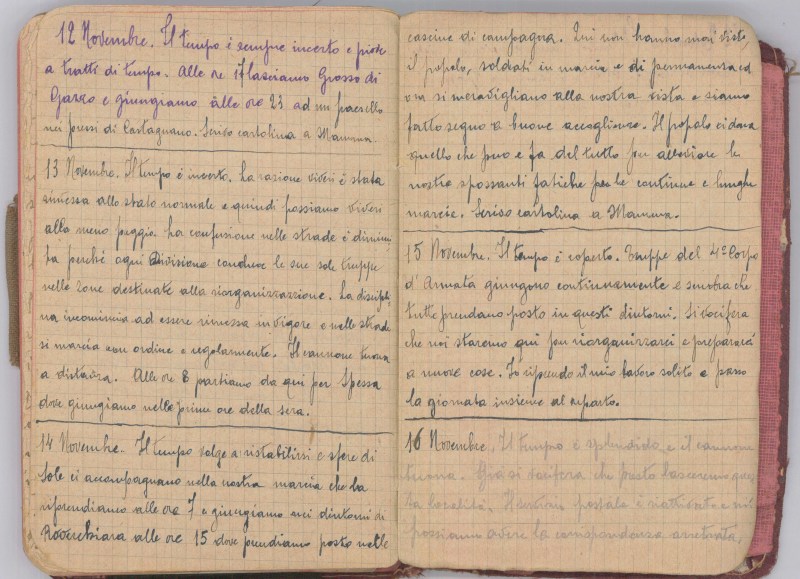 12 Novembre. Il tempo è sempre incerto e piove
a tratti di tempo. Alle ore 17 lasciamo Grosso di
Gazzo e giungiamo alle ore 23 ad un paesello
nei pressi di Castagnaro. Scrivo cartolina a Mamma.
13 Novembre. Il tempo è incerto. La razione viveri è stata
rimessa allo stato normale e quindi possiamo viveri
alla meno peggio. La confusione nelle strade è diminui
ta perché ogni Divisione conduce le sue sole truppe
nelle zone destinate alla riorganizzazione. La discipli
na incomincia ad essere rimessa in vigore e nelle strade
si marcia con ordine e regolarmente. Il cannone tuona
a distanza. Alle ore 8 partiamo da qui per Spessa
dove giungiamo nelle prime ore della sera.
14 Novembre. Il tempo volge a ristabilirsi e sfere di
Sole ci accompagnano nella nostra marcia che la
riprendiamo alle ore 7 e giungiamo nei dintorni di
Roverchiara alle ore 15 dove prendiamo posto nelle
cascine di campagna. Qui non hanno mai visto,
il popolo, soldati in marcia e di permanenza ed
ora si meravigliano alla nostra vista e siamo
fatto segno a buone accoglienze. Il popolo ci dona
quello che puo e fa del tutto per alleviare le
nostre spossanti fatiche per le continue e lunghe
marcie. Scrivo cartolina a Mamma.
15 Novembre. Il tempo è coperto. Truppe del 4º Corpo
d'Armata giungono continuamente e sembra che
tutte prendano posto in questi dintorni. Si vocifera
che noi staremo qui per riorganizzarci e prepararci
a nuove cose. Io riprendo il mio lavoro solito e passo
la giornata insieme al reparto.
16 Novembre. Il tempo è splendido e il cannone
tuona. Già si vocifera che presto lasceremo ques
ta località. Il servizio postale è riattivato e noi
possiamo avere la corrispondenza arretrata.